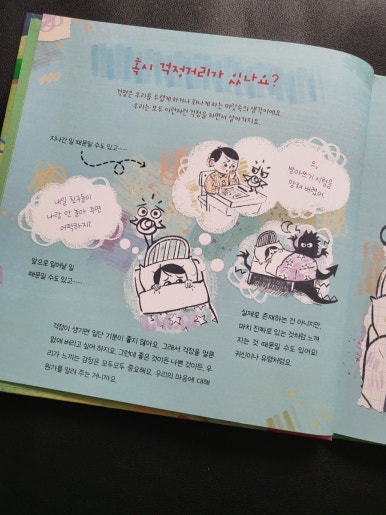 혹시 걱정거리가 있나요?
걱정은 우리를 두렵게 하거나 화나게 하는 마음속의 생각이에요.
우리는 모두 이런저런 걱정을 하면서 살아가지요.
지나간 일 때문일 수도 있고……
으,
받아쓰기 시험을
망쳐 버렸어.
내일 친구들이
나랑 안 놀아 주면
어떡하지?
앞으로 일어날 일
때문일 수도 있고……
실제로 존재하는 건 아니지만,
마치 진짜로 있는 것처럼 느껴
지는 것 때문일 수도 있어요!
귀신이나 유령처럼요.
걱정이 생기면 일단 기분이 좋지 않아요. 그래서 걱정을 얼른
없애 버리고 싶어 하지요. 그런데 좋은 것이든 나쁜 것이든, 우
리가 느끼는 감정은 모두모두 중요해요. 우리의 마음에 대해
뭔가를 알려 주는 거니까요.